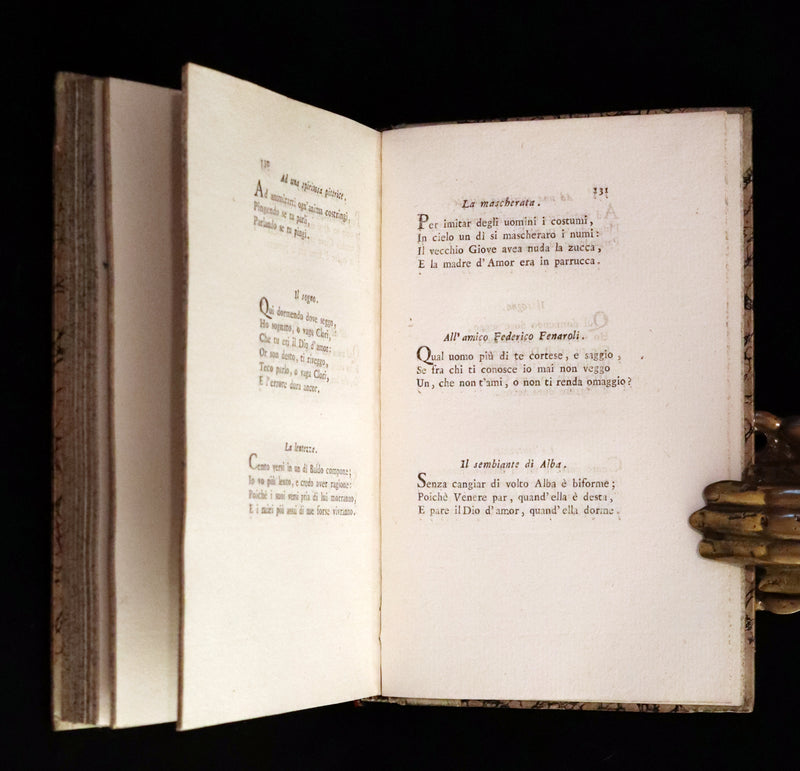 130
Ad una spiritosa pittrice.
Ad ammirarti ogn'anima costringi,
Pingendo se tu parli,
Parlando se tu pingi.
Il sogno.
Qui dormendo dove seggo,
Ho sognato, o vaga Clori,
Che tu eri il Dio d'amor:
Or son desto, ti riveggo,
Teco parlo, o vaga Clori,
E l'errore dura ancor.
La lentezza.
Cento versi in un dì Baldo compone;
Io vo più lento, e credo aver ragione:
Poichè i suoi versi pria di lui morranno,
E i miei più assai di me forse vivranno.
131
La mascherata.
Per imitar degli uomini i costumi,
In cielo un dì si mascheraro i numi:
Il vecchio Giove avea nuda la zucca,
E la madre d'Amor era in parrucca.
All'amico Federico Fenaroli.
Qual uomo più di te cortese, e saggio,
Se fra chi ti conosce io mai non veggo
Un, che non t'ami, o non ti renda omaggio?
Il sembiante di Alba.
Senza cangiar di volto Alba è biforme;
Poichè Venere par, quand'ella è desta,
E pare il Dio d'amor, quand'ella dorme.